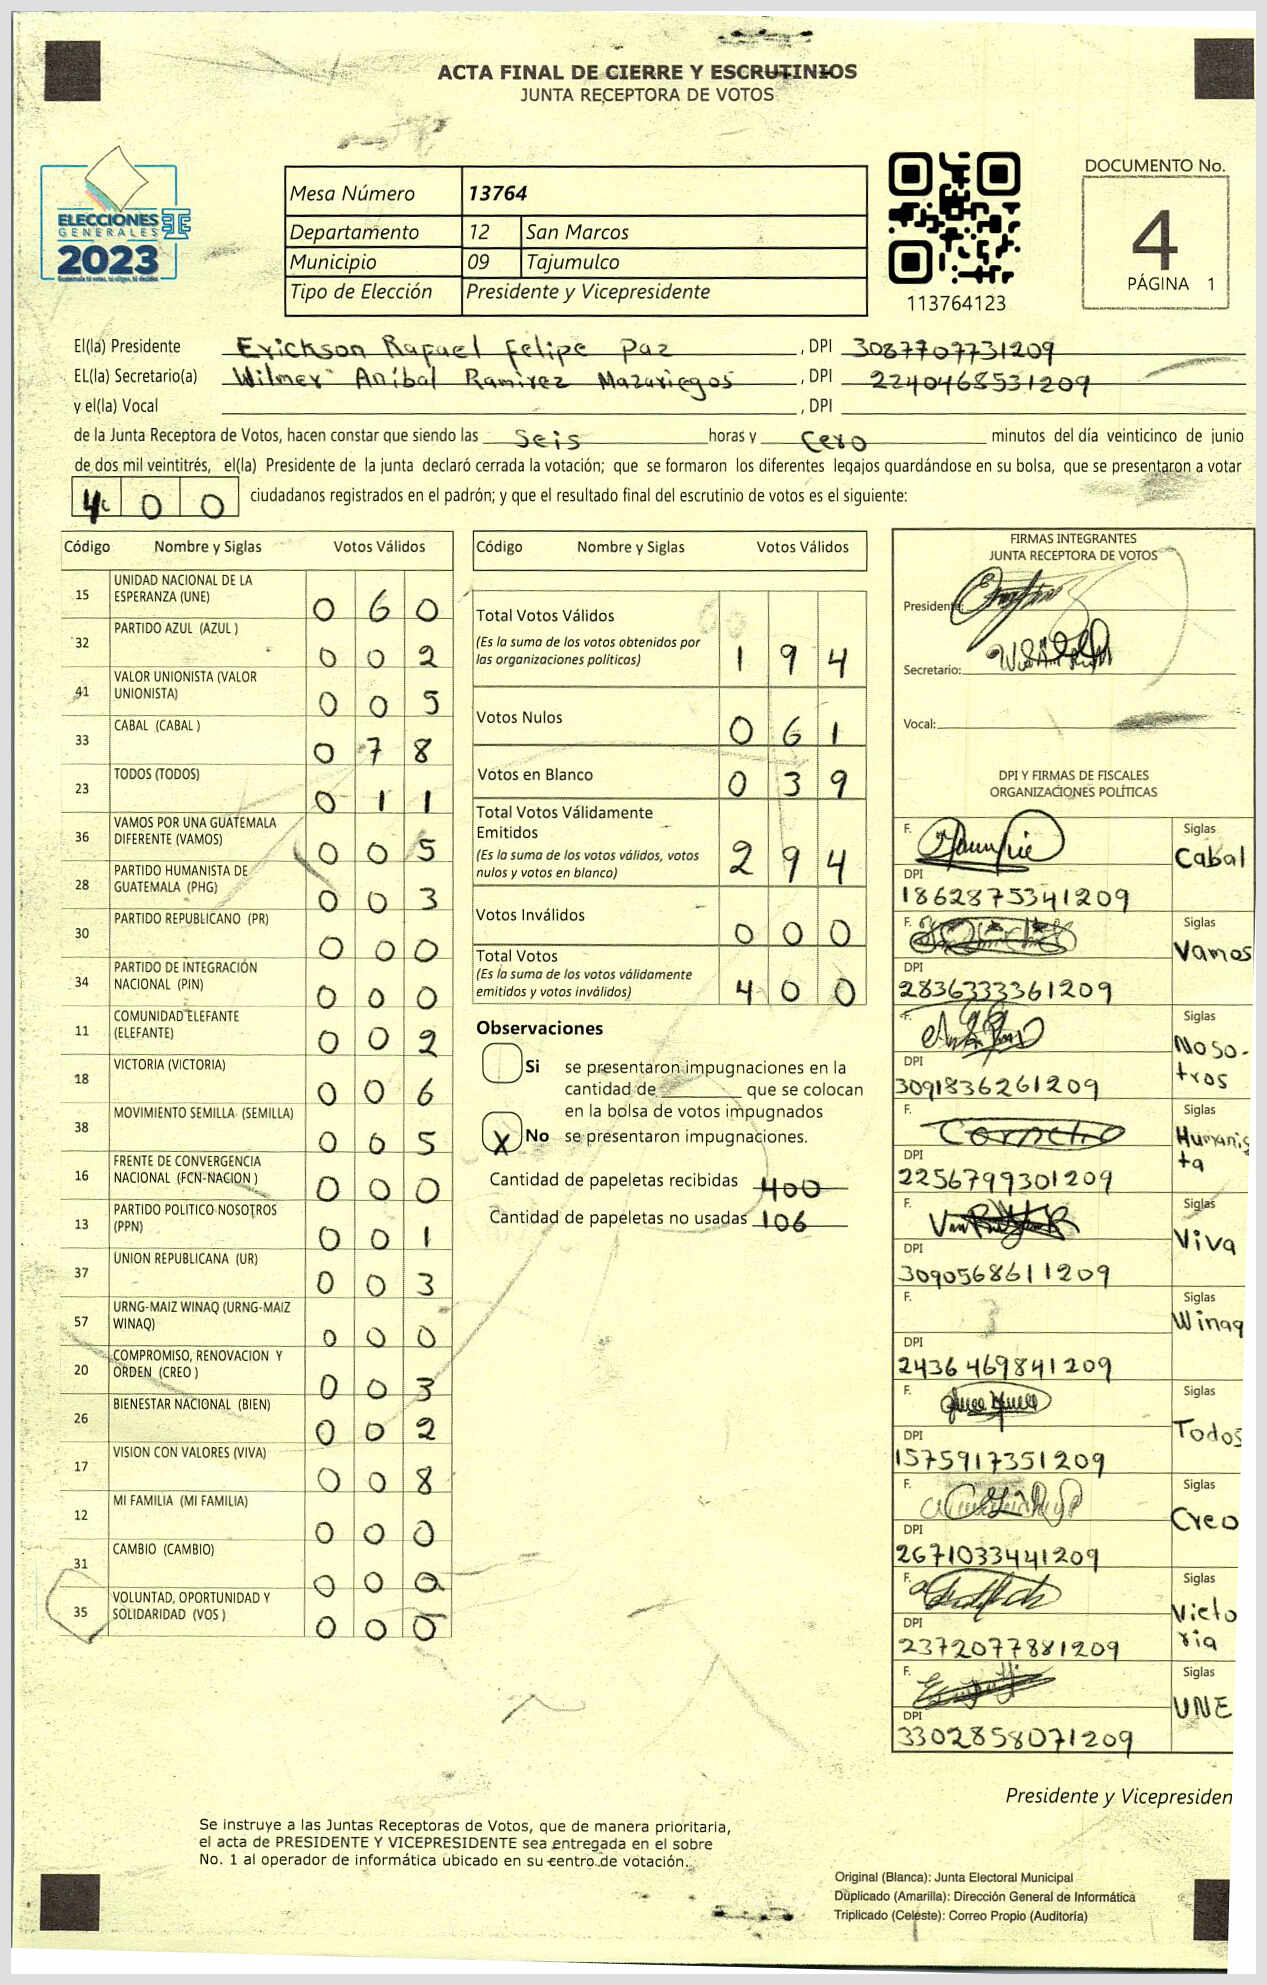 ACTA FINAL DE CIERRE Y ESCRUTINIOS
JUNTA RECEPTORA DE VOTOS
ELECCIONES
GENERALES
2023
Mesa Número 13764
Departamento 12 San Marcos
Municipio 09 Tajumulco
Tipo de Elección Presidente y Vicepresidente
113764123
DOCUMENTO No.
4
PÁGINA 1
El(la) Presidente Erickson Rafael Felipe Paz, DPI 3087707731209
EL(la) Secretario(a) Wilmer Aníbal Ramirez Mazariegos, DPI 2240468531209
y el(la) Vocal , DPI
de la Junta Receptora de Votos, hacen constar que siendo las Seis horas y Cero minutos del día veinticinco de junio
de dos mil veintitrés, el(la) Presidente de la junta declaró cerrada la votación; que se formaron los diferentes legajos guardándose en su bolsa, que se presentaron a votar
400 ciudadanos registrados en el padrón; y que el resultado final del escrutinio de votos es el siguiente:
Código Nombre y Siglas Votos Válidos
15 UNIDAD NACIONAL DE LA ESPERANZA (UNE) 060
32 PARTIDO AZUL (AZUL ) 002
41 VALOR UNIONISTA (VALOR UNIONISTA) 005
33 CABAL (CABAL ) 078
23 TODOS (TODOS) 011
36 VAMOS POR UNA GUATEMALA DIFERENTE (VAMOS) 005
28 PARTIDO HUMANISTA DE GUATEMALA (PHG) 003
30 PARTIDO REPUBLICANO (PR) 000
34 PARTIDO DE INTEGRACIÓN NACIONAL (PIN) 000
11 COMUNIDAD ELEFANTE (ELEFANTE) 002
18 VICTORIA (VICTORIA) 006
38 MOVIMIENTO SEMILLA (SEMILLA) 005
16 FRENTE DE CONVERGENCIA NACIONAL (FCN-NACION ) 000
13 PARTIDO POLITICO NOSOTROS (PPN) 001
37 UNION REPUBLICANA (UR) 003
57 URNG-MAIZ WINAQ (URNG-MAIZ WINAQ) 000
20 COMPROMISO, RENOVACION Y ORDEN (CREO ) 003
26 BIENESTAR NACIONAL (BIEN) 002
17 VISION CON VALORES (VIVA) 008
12 MI FAMILIA (MI FAMILIA) 000
31 CAMBIO (CAMBIO) 000
35 VOLUNTAD, OPORTUNIDAD Y SOLIDARIDAD (VOS ) 000
Código Nombre y Siglas Votos Válidos
Total Votos Válidos
(Es la suma de los votos obtenidos por las organizaciones políticas) 194
Votos Nulos 061
Votos en Blanco 039
Total Votos Válidamente Emitidos
(Es la suma de los votos válidos, votos nulos y votos en blanco) 294
Votos Inválidos 000
Total Votos
(Es la suma de los votos válidamente emitidos y votos inválidos) 400
Observaciones
Si se presentaron impugnaciones en la
cantidad de que se colocan
en la bolsa de votos impugnados
X No se presentaron impugnaciones.
Cantidad de papeletas recibidas 400
Cantidad de papeletas no usadas 106
FIRMAS INTEGRANTES
JUNTA RECEPTORA DE VOTOS
Presidente:
Secretario:
Vocal:
DPI Y FIRMAS DE FISCALES
ORGANIZACIONES POLÍTICAS
F. Siglas Cabal
DPI 1862875341209
F. Siglas Vamos
DPI 2836333361209
F. Siglas Noso-tros
DPI 3091836261209
F. Siglas Humanista
DPI 2256799301209
F. Siglas Viva
DPI 3090568611209
F. Siglas Winaq
DPI 2436469841209
F. Siglas Todos
DPI 1575917351209
F. Siglas Creo
DPI 2671033441209
F. Siglas Victoria
DPI 2372077881209
F. Siglas UNE
DPI 3302858071209
Presidente y Vicepresiden
Se instruye a las Juntas Receptoras de Votos, que de manera prioritaria,
el acta de PRESIDENTE Y VICEPRESIDENTE sea entregada en el sobre
No. 1 al operador de informática ubicado en su centro de votación.
Original (Blanca): Junta Electoral Municipal
Duplicado (Amarilla): Dirección General de Informática
Triplicado (Celeste): Correo Propio (Auditoría)